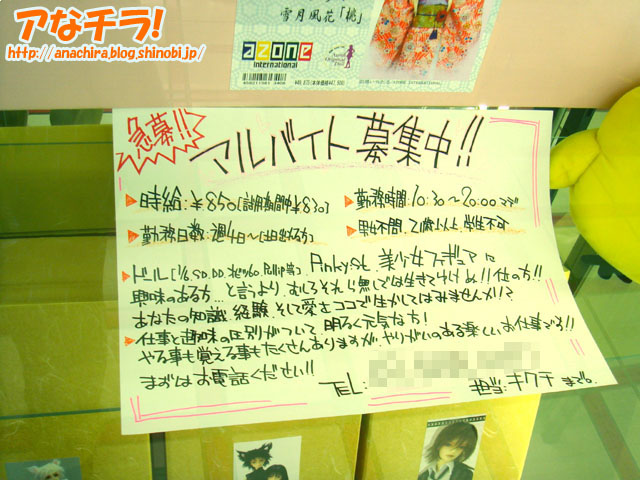 アなチラ!
http://anachira.blog.shinobi.jp/
雪月風花「桃」
azone
international
急募!!
アルバイト募集中!!
時給:¥850[試用期間中¥830]
勤務時間:10:30〜20:00マデ
勤務日数:週4日〜[土日出勤できる方]
男女不問、21歳以上、学生不可
ドール[1/6、SD、DD、オビツ60、Pullip等]、Pinkyst.美少女フィギュアに
興味のある方…と言うより、むしろそれら無しでは生きてゆけぬ!!位の方!!
あなたの知識、経験、そして愛をココで生かしてはみませんか!?
仕事と趣味の区別がついて、明るく元気な方!
やる事も覚える事もたくさんありますが、やりがいのある楽しいお仕事です!!
まずはお電話ください!!
TEL:
担当:キクチまで。